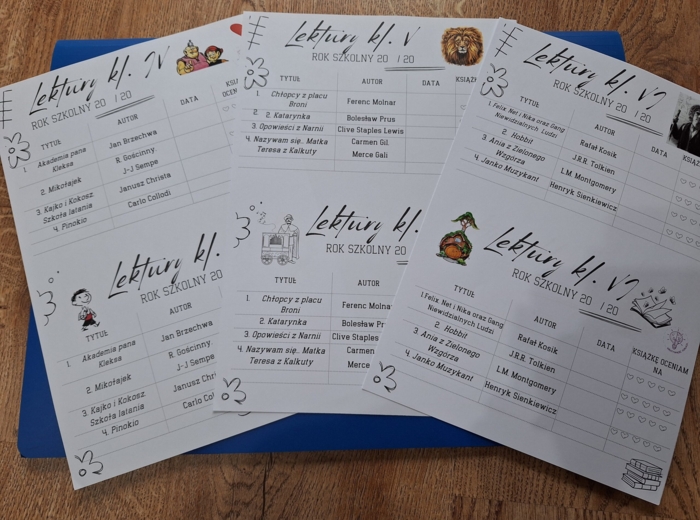 Lektury kl. IV
ROK SZKOLNY 20 /20
TYTUŁ AUTOR DATA
1. Akademia pana Kleksa Jan Brzechwa
2. Mikołajek R. Gościnny J-J Sempe
3. Kajko i Kokosz. Szkoła latania Janusz Christa
4. Pinokio Carlo Collodi
Lektury kl.
ROK SZKOLNY 20
TYTUŁ AUTOR
1. Akademia pana Kleksa Jan Brzechwa
2. Mikołajek R. Gościnny J-J Sempe
3. Kajko i Kokosz. Szkoła latania Janusz Chri
4. Pinokio Carlo Co
Lektury kl. V
ROK SZKOLNY 20 /20
TYTUŁ AUTOR DATA KSIĄŻK
1. Chłopcy z placu Broni Ferenc Molnar
2. Katarynka Bolesław Prus
3. Opowieści z Narnii Clive Staples Lewis
4. Nazywam się.. Matka Teresa z Kalkuty Carmen Gil Merce Gali
Lektury kl.
ROK SZKOLNY 20
TYTUŁ AUTOR
1. Chłopcy z placu Broni Ferenc Molnar
2. Katarynka Bolesław Pr
3. Opowieści z Narnii Clive Staples
4. Nazywam się.. Matka Teresa z Kalkuty Carmen Merce G
Lektury kl. VI
ROK SZKOLNY 20 /20
TYTUŁ AUTOR DATA
1. Felix, Net i Nika oraz Gang Niewidzialnych Ludzi Rafał Kosik
2. Hobbit J.R.R. Tolkien
3. Ania z Zielonego Wzgórza L.M. Montgomery
4. Janko Muzykant Henryk Sienkiewicz
Lektury kl. VI
ROK SZKOLNY 20 /20
TYTUŁ AUTOR DATA KSIĄŻKE OCENIAM NA
1. Felix, Net i Nika oraz Gang Niewidzialnych Ludzi Rafał Kosik
2. Hobbit J.R.R. Tolkien
3. Ania z Zielonego Wzgórza L.M. Montgomery
4. Janko Muzykant Henryk Sienkiewicz